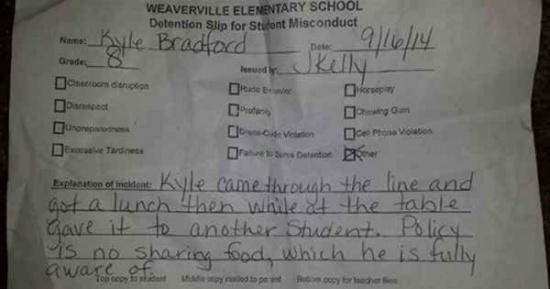 WEAVERVILLE ELEMENTARY SCHOOL
Detention Slip for Student Misconduct
Name: Kyle Bradford Date: 9/16/14
Grade: 8 Issued by: J Kelly
Classroom disruption Rude Behavior Horseplay
Disrespect Profanity Chewing Gum
Unpreparedness Dress-Code Violation Cell Phone Violation
Excessive Tardiness Failure to Serve Detention Other
Explanation of Incident: Kyle came through the line and
got a lunch then while at the table
gave it to another student. Policy
is no sharing food, which he is fully
aware of.
Top copy to student Middle copy mailed to parent Bottom copy for teacher files